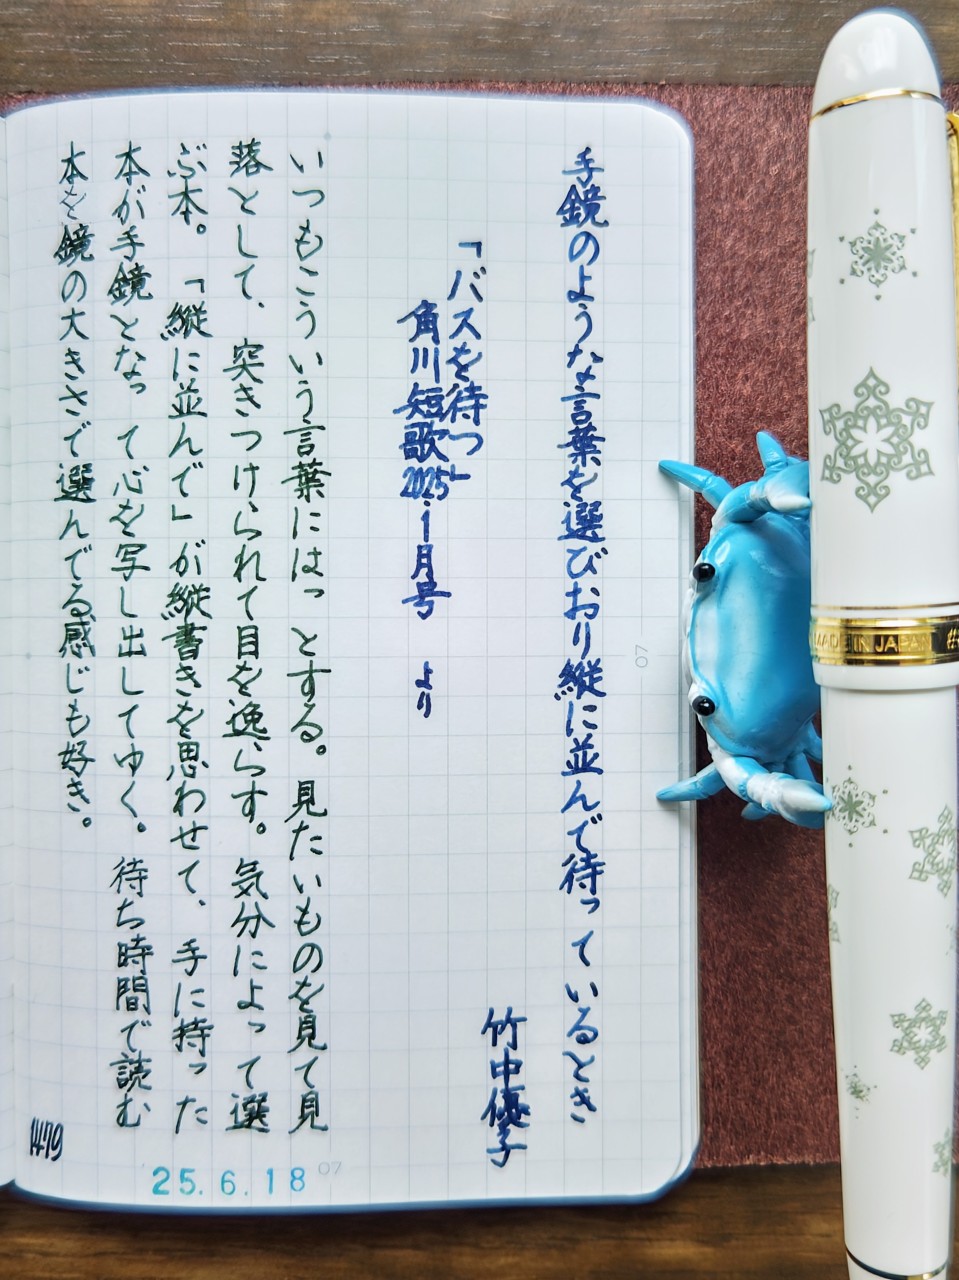 手鏡のような言葉を選びおり縦に並んで待っているとき
竹中優子
「バスを待つ」
角川短歌2025.1月号 より
いつもこういう言葉にはっとする。見たいものを見て見
落として、突きつけられて目を逸らす。気分によって選
ぶ本。「縦に並んで」が縦書きを思わせて、手に持った
本が手鏡となって心を写し出してゆく。待ち時間で読む
本を鏡の大きさで選んでる感じも好き。
1479
25.6.18
07
07
MADE IN JAPAN